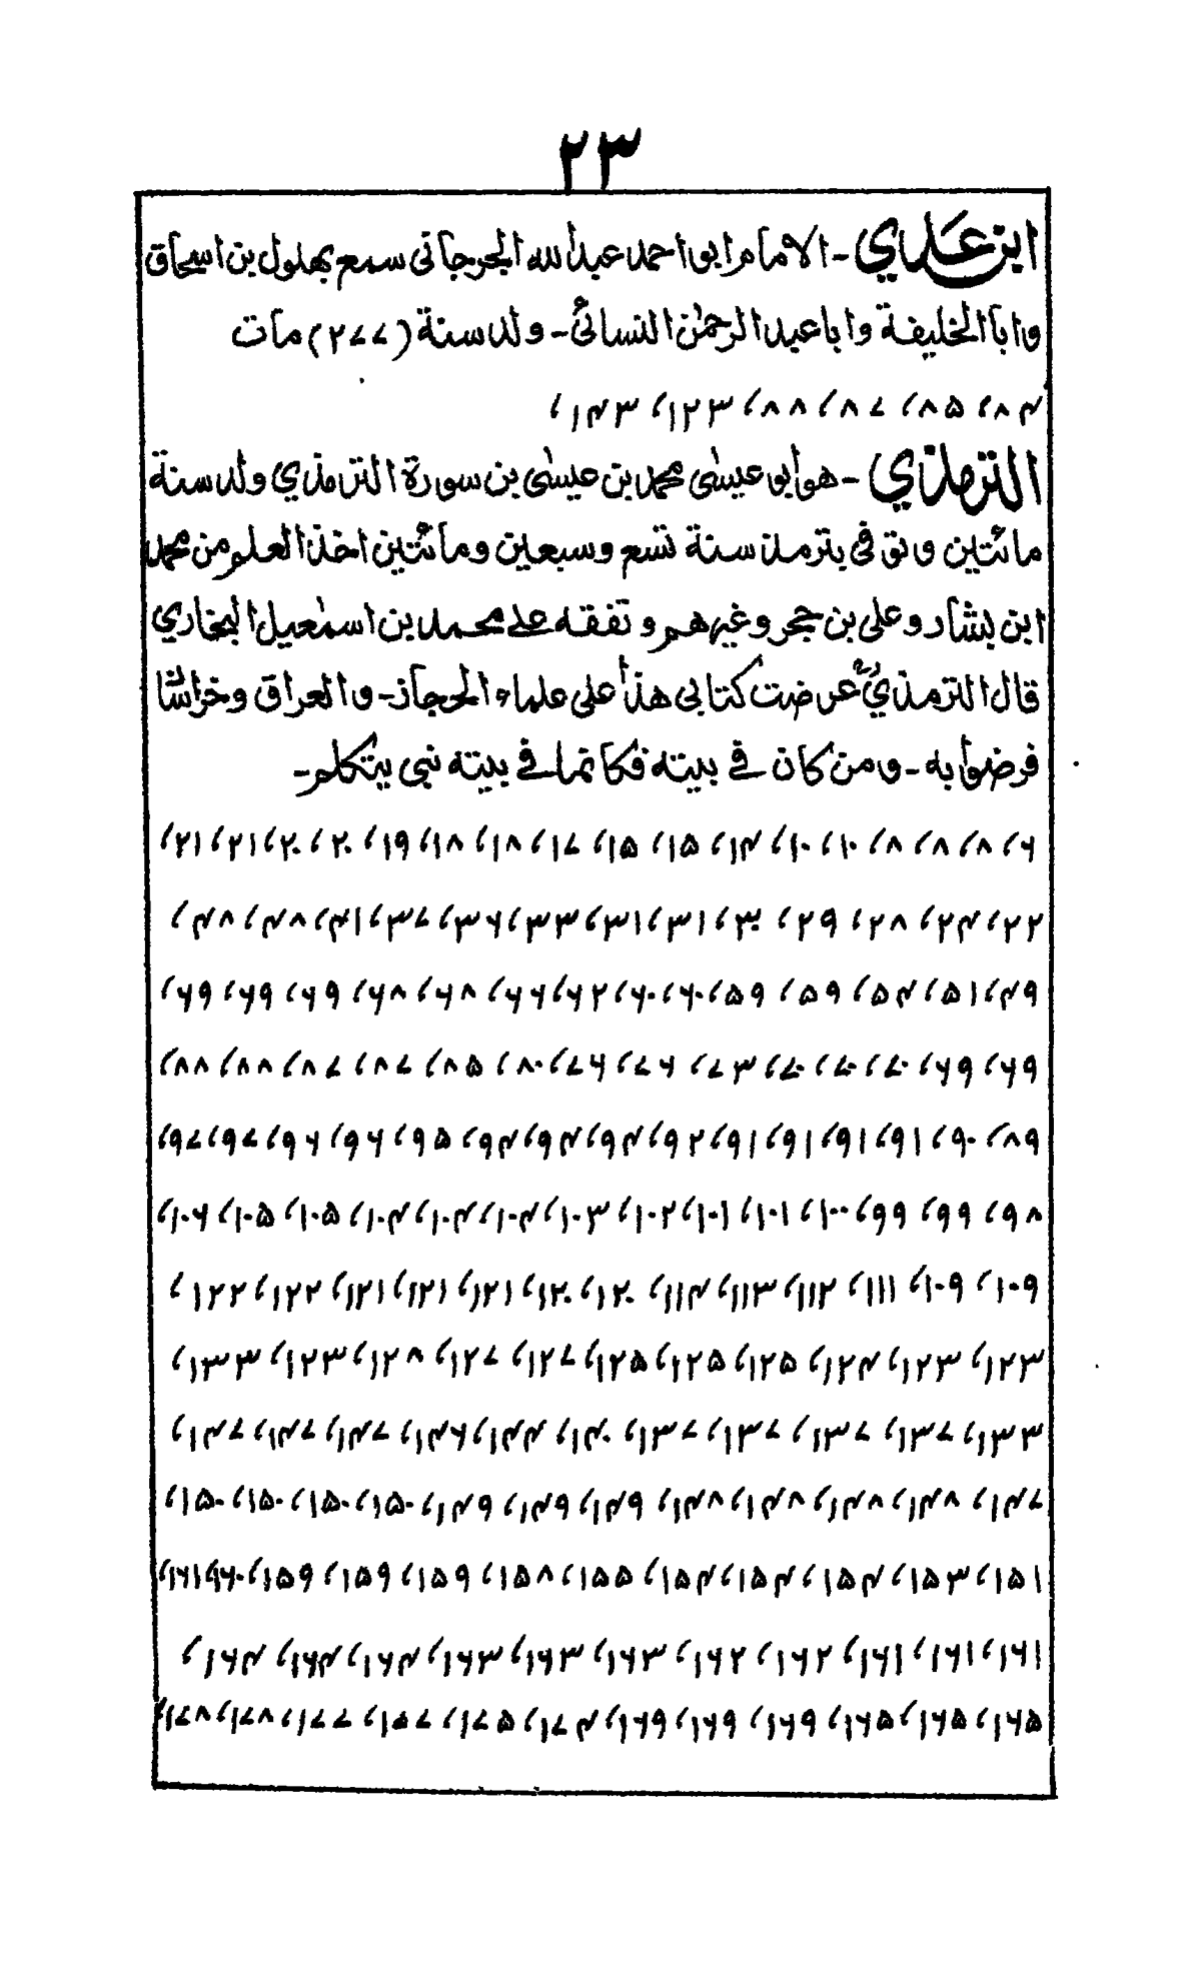 ٢٣
ابن عدي - الامام ابو احمد عبد الله الجرجاني سمع بهلول بن اسحاق
وابا الخليفة وابا عبد الرحمٰن النسائي - ولد سنة (٢٧٧) مات
٨۴، ٨۵، ٨٧، ٨٨، ١٢٣، ١۴٣،
الترمذي - هو ابو عيسٰى محمد بن عيسٰى بن سورة الترمذي ولد سنة
مائتين وتوفي بترمذ سنة تسع وسبعين ومائتين اخذ العلم من محمد
ابن بشار وعلي بن حجر وغيرهم وتفقه على محمد بن اسمٰعيل البخاري
قال الترمذي عرضت كتابي هذا على علماء الحجاز - والعراق وخراسان
فرضوا به - ومن كان في بيته فكانما في بيته نبي يتكلم -
۶، ٨، ٨، ٨، ١٠، ١٠، ١۴، ١۵، ١۵، ١٧، ١٨، ١٨، ١٩، ٢٠، ٢٠، ٢١، ٢١،
٢٢، ٢۴، ٢٨، ٢٩، ٣٠، ٣١، ٣١، ٣٣، ٣۶، ٣٧، ۴١، ۴٨، ۴٨،
۴٩، ۵١، ۵۴، ۵٩، ۵٩، ۶٠، ۶٠، ۶٢، ۶۶، ۶٨، ۶٨، ۶٩، ۶٩، ۶٩،
۶٩، ۶٩، ٧٠، ٧٠، ٧٠، ٧٣، ٧۶، ٧۶، ٨٠، ٨۵، ٨٧، ٨٧، ٨٨، ٨٨،
٨٩، ٩٠، ٩١، ٩١، ٩١، ٩١، ٩٢، ٩۴، ٩۴، ٩۴، ٩۵، ٩۶، ٩۶، ٩٧، ٩٧،
٩٨، ٩٩، ٩٩، ١٠٠، ١٠١، ١٠١، ١٠٢، ١٠٣، ١٠۴، ١٠۴، ١٠۴، ١٠۵، ١٠۵، ١٠۶،
١٠٩، ١٠٩، ١١١، ١١٢، ١١٣، ١١۴، ١٢٠، ١٢٠، ١٢١، ١٢١، ١٢١، ١٢٢، ١٢٢،
١٢٣، ١٢٣، ١٢۴، ١٢۵، ١٢۵، ١٢۵، ١٢٧، ١٢٧، ١٢٨، ١٢٣، ١٣٣،
١٣٣، ١٣٧، ١٣٧، ١٣٧، ١٣٧، ١۴٠، ١۴۴، ١۴۶، ١۴٧، ١۴٧، ١۴٧،
١۴٧، ١۴٨، ١۴٨، ١۴٨، ١۴٨، ١۴٩، ١۴٩، ١۴٩، ١۵٠، ١۵٠، ١۵٠، ١۵٠،
١۵١، ١۵٣، ١۵۴، ١۵۴، ١۵۴، ١۵۵، ١۵٨، ١۵٩، ١۵٩، ١۵٩، ١۶٠، ١۶١،
١۶١، ١۶١، ١۶١، ١۶٢، ١۶٢، ١۶٣، ١۶٣، ١۶٣، ١۶۴، ١۶۴، ١۶۴،
١۶۵، ١۶۵، ١۶۵، ١۶٩، ١۶٩، ١۶٩، ١٧۴، ١٧۵، ١٧٧، ١٧٨، ١٧٨،